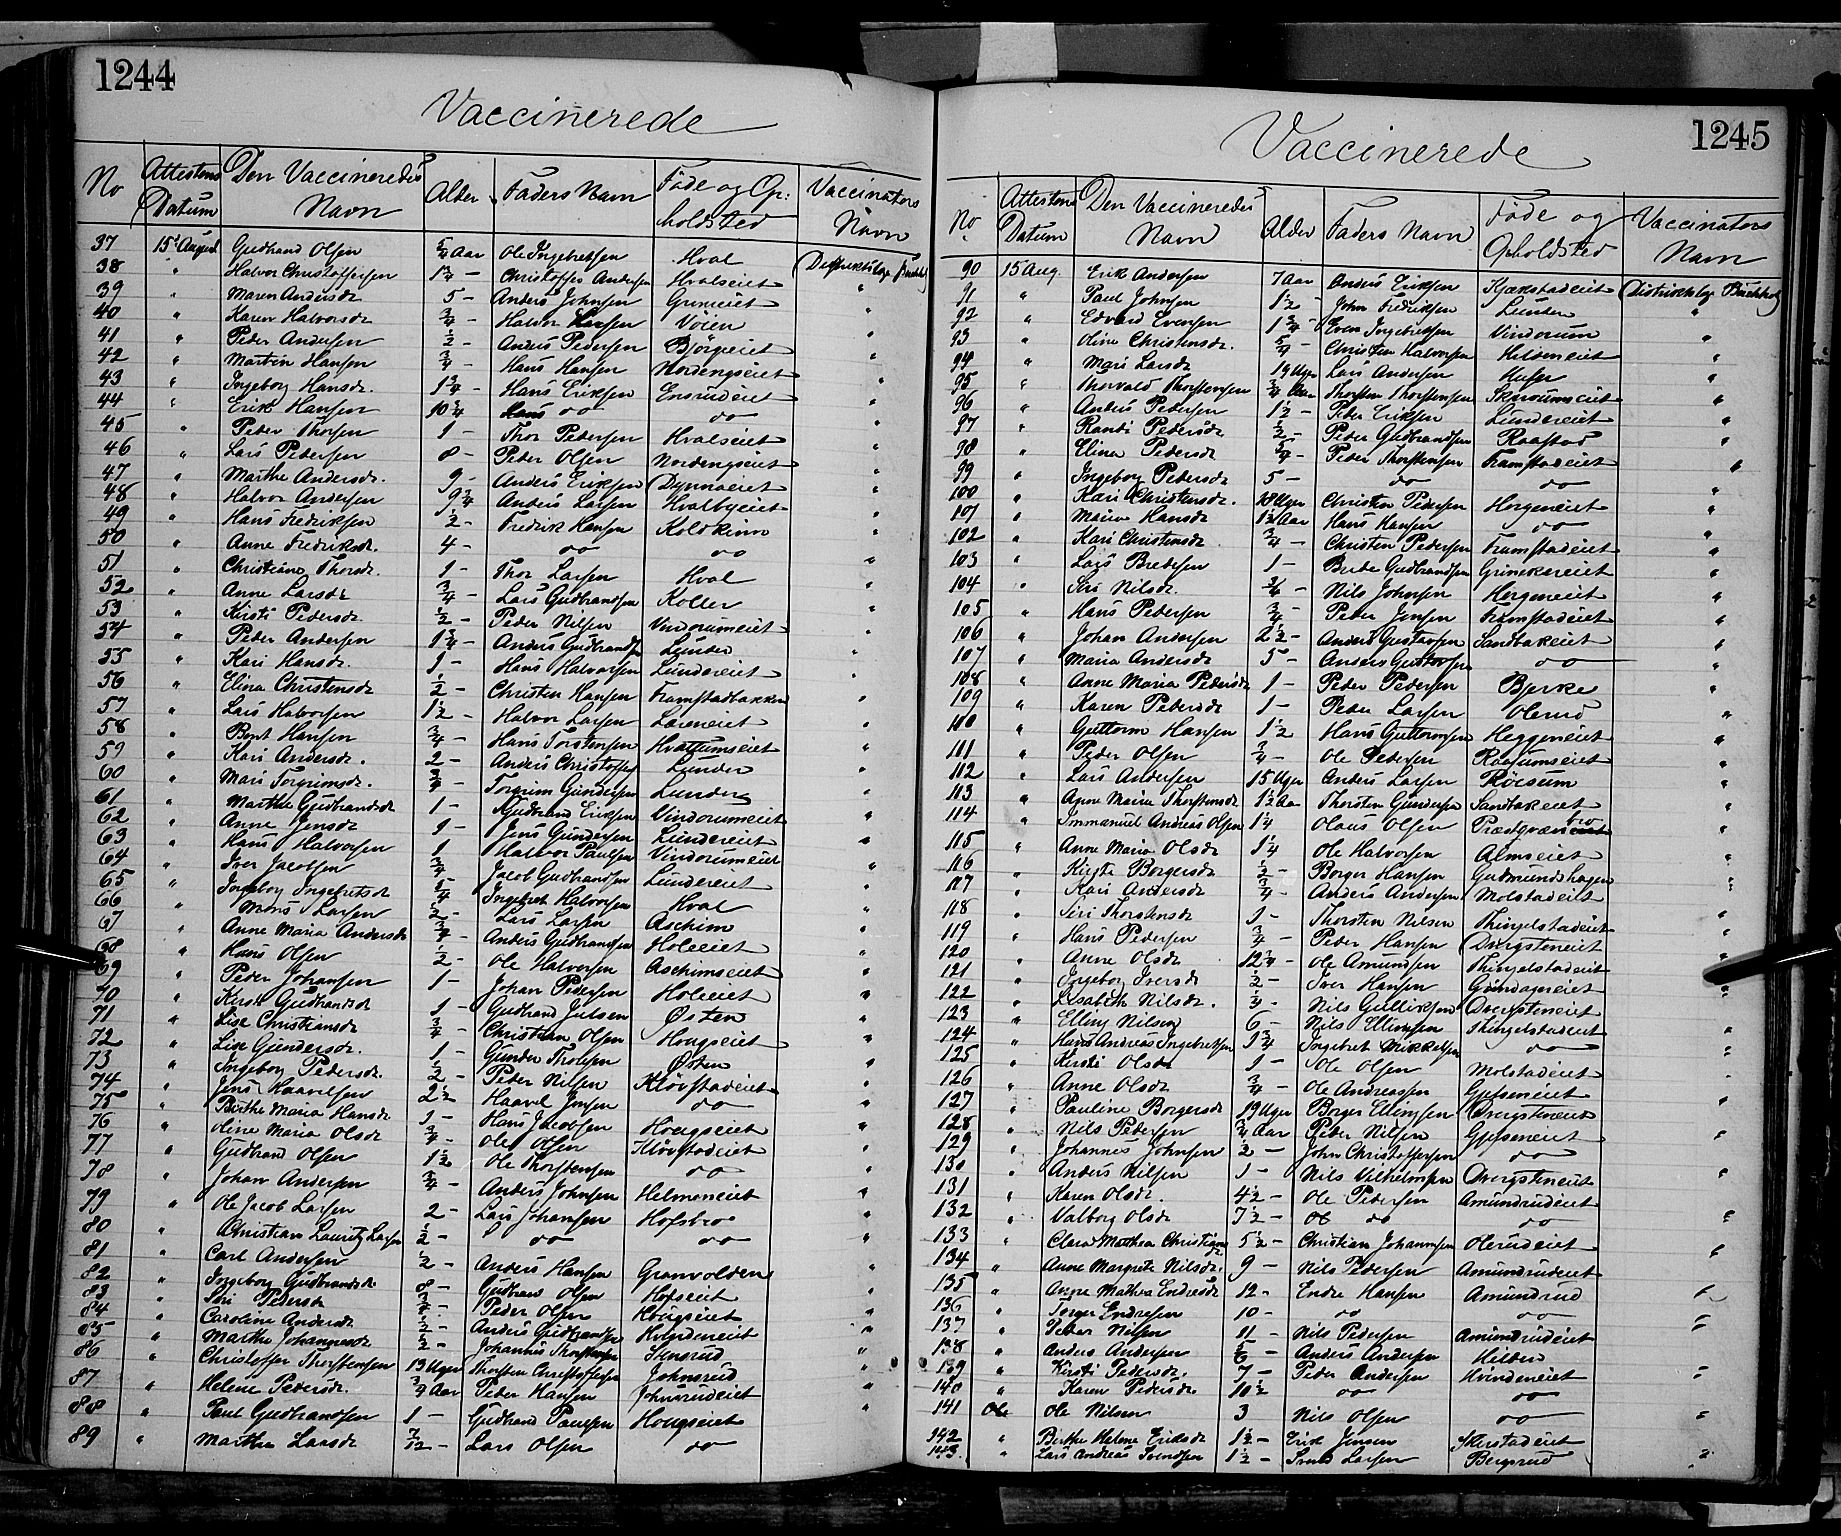 1244
Vaccinerede
No Attestens Datum Den Vaccineredes Navn Alder Faders Navn Føde og Opholdsted Vaccinators Navn
37 15' August Gudbrand Olsen 5/4 Aar Ole Ingebretsen Hval Distriktslæge Buchholz
38 " Halvor Christophersen 1 1/4 - Christoffer Andersen Hvalseiet "
39 " Maren Andersdr 5 - Anders Johnsen Grimeiet "
40 " Karen Halvorsdr 3/4 - Halvor Hansen Vøien "
41 " Peder Andersen 1/2 - Anders Pedersen Bjørgeeiet "
42 " Martin Hansen 3/4 - Hans Hansen Nordengseiet "
43 " Ingeborg Hansdr. 1 3/4 - Hans Eriksen Ensrudeiet "
44 " Erik Hansen 10 3/4 Hans do do "
45 " Peder Thorsen 1 - Thor Pedersen Hvalseiet "
46 " Lars Pedersen 8 - Peder Olsen Nordengseiet "
47 " Marthe Andersdr. 9 - Anders Eriksen Dynnaeiet "
48 " Halvor Andersen 9 3/4 Anders Larsen Hvalbyeiet "
49 " Hans Fredriksen 1/2 - Fredrik Hansen Koldkinn "
50 " Anne Fredriksdr. 4 - do do
51 " Christiane Thorsdr. 1 - Thor Larsen Hval "
52 " Anne Larsdr 3/4 - Lars Gudbrandsen Koller "
53 " Kirsti Pedersdr 1/2 - Peder Nilsen Vindorumeiet "
54 " Peder Andersen 1 3/4 - Anders Gudbrandsen Lunder "
55 " Kari Hansdr. 1 - Hans Halvorsen Lundereiet "
56 " Elina Christensdr 1/2 - Christen Hansen Framstadbakken "
57 " Lars Halvorsen 1 1/2 - Halvor Larsen Læreneiet "
58 " Bent Hansen 3/4 - Hans Torstensen Hvattumseiet "
59 " Kari Andersdr. 2 - Anders Christoffers Lunder "
60 " Mari Torgrimsdr. 3/4 - Torgrim Gundersen Lunder "
61 " Marthe Gudbrandsdr 1 - Gudbrand Eriksen Vindorumeiet "
62 " Anne Jensdr 1 - Jens Gundersen Lundereiet "
63 " Hans Halvorsen 1 Halvor Paulsen Vindorumeiet "
64 " Iver Jacobsen 3/4 Jacob Gudbrandsen Lundereiet "
65 " Ingeborg Ingebretsdr 5/4 Ingebret Halvorsen Hval "
66 " Mons Larsen 2 - Lars Larsen Aschim "
67 " Anne Maria Andersdr 3/4 - Anders Gudbrandsen Holeeiet "
68 " Hans Olsen 1/2 - Ole Halvorsen Aschimseiet "
69 " Peder Johansen 1 - Johan Pedersen Holeeiet "
70 " Kirsti Gudbrandsdr 1 - Gudbrand Julsen Østen "
71 " Lise Christiansdr 3/4 - Christian Olsen Hougseiet "
72 " Lise Gundersdr. 1 - Gunder Tholfsen Østen "
73 " Ingeborg Pedersdr. 1/2 - Peder Nilsen Kløvstadeiet "
74 " Jens Haavelsen 2 1/2 Haavel Jensen do "
75 " Birthe Maria Hansdr 1 - Hans Jacobsen Hougseiet "
76 " Oline Maria Olsdr 3/4 - Ole Olsen Kløvstadeiet "
77 " Gudbrand Olsen 1 1/2 Ole Thorstensen do "
78 " Johan Andersen 3/4 - Anders Johnsen Helmeneiet "
79 " Ole Jacob Larsen 2 - Lars Johansen Hofsbro "
80 " Christian Lauritz Larsen 1/2 - do do "
81 " Carl Andersen 1/2 - Anders Hansen Granvolden "
82 " Ingeborg Gudbrandsdr 8 - Gudbrand Olsen Hofseiet "
83 " Siri Pedersdr 3/4 - Peder Olsen Hougseiet "
84 " Caroline Andersdr 1/2 - Anders Gudbrandsen Hvindeneiet "
85 " Marthe Johannesdr 1/2 - Johannes Thorstensen Sensrud "
86 " Christoffer Thorstensen 13 Uger Thorsten Christoffersen Johnsrud "
87 " Helene Pedersdr. 3/4 Aar Peder Hansen Johnsrudeiet "
88 " Paul Gudbrandsen 1 - Gudbrand Paulsen Hougseiet "
89 " Marthe Larsdr 7/12 - Lars Olsen do
1245
Vaccinerede
No Attestens Datum Den Vaccineredes Navn Alder Faders Navn Føde og Opholdsted Vaccinators Navn
90 15 Aug. Erik Andersen 7 Aar Anders Eriksen Kjækstadeiet Distriktslæg Buchholz
91 " Paul Johnsen 1 1/2 - John Fredriksen Lunder "
92 " Edvard Evensen 1 3/4 - Even Ingebriksen Vindorum
93 " Oline Christensdr. 5/4 - Christen Halvorsen Helmeneiet "
94 " Mari Larsdr 19 Uger Lars Andersen Hufse "
95 " Thorvald Thorstensen 3/4 Aar Thorsten Thorstensen Skiaroumseiet "
96 " Anders Pedersen 1 1/2 - Peder Eriksen Lundereiet "
97 " Randi Pedersdr 1/2 - Peder Gudbrandsen Raastad "
98 " Elina Pedersdr 5/4 - Peder Thorstensen Framstadeiet "
99 " Ingeborg Pedersdr 5 - do do "
100 " Kari Christensdr. 18 Uger Christen Pedersen Horgeneiet "
101 " Maren Hansdr 1 1/2 Aar Hans Hansen do "
102 " Kari Christensdr 3/4 - Christen Pedersen Framstadeiet "
103 " Lars Bredesen 1 - Brede Gudbrandsen Grinakereiet "
104 " Siri Nilsdr. 2/4 - Nils Johnsen Horgeneiet "
105 " Hans Pedersen 3/4 Peder Jensen Framstadeiet "
106 " Johan Andersen 2 1/2 - Anders Gustavsen Sandbakeiet "
107 " Maria Andersdr 5 - Anders Gustavsen do "
108 " Anne Maria Pedersdr 1 - Peder Pedersen Bjerke "
109 " Karen Pedersdr 1 - Peder Larsen Olerud "
110 " Guttorm Hansen 1 1/2 Hans Guttormsen Heggeneiet "
111 " Peder Olsen 3/4 - Ole Pedersen Raasumseiet "
112 " Lars Andersen 15 Uger Anders Larsen Røisum "
113 " Anne Maria Thorstensdr 1 1/2 Aar Thorsten Gundersen Sandbakeiet "
114 " Immanuel Andreas Olsen 1 1/4 Olaus Olsen Præstgræn bro "
115 " Anne Maria Olsdr 1 1/4 Ole Halvorsen Almseiet "
116 " Kirste Borgersdr 1/2 - Borger Hansen Gudmundshagen "
117 " Kari Andersdr 3/4 - Anders Andersen Molstadeiet "
118 " Siri Thorstensdr 1 - Thorsten Nilsen Thingelstadeiet "
119 " Hans Pedersen 3/4 - Peder Hansen Dvergsteneiet "
120 " Anne Olsdr 12 1/4 - Ole Amundsen Thingelstadeiet "
121 " Ingeborg Iversdr 1/2 - Iver Hansen Gamgeneiet "
122 " Lisabeth Nilsdr. 1/4 - Nils Gulliksen Dvergsteneiet "
123 " Elling Nilsen 6 - Nils Ellingsen Thingelstadeiet "
124 " Hans Andreas Ingebretsen 1 3/4 Ingebret Mikkelsen do "
125 " Kirsti Olsdr 1 - Ole Olsen Molstadeiet "
126 " Anne Olsdr 3/4 - Ole Andreassen Gjefseneiet "
127 " Pauline Borgersdr 19 Uger Borger Ellingsen Dvergsteneiet "
128 " Nils Pedersen 3/4 Aar Peder Nilsen Gjefseneiet "
129 " Johannes Johnsen 2 - John Christoffersen do "
130 " Anders Nilsen 1 - Nils Vilhelmsen Dvergsteneiet "
131 " Karen Olsdr. 4 1/2 - Ole Pedersen Amundrudeiet "
132 " Valborg Olsdr 7 1/2 - Ole do do "
133 " Clara Matthea Christiansdr 5 1/2 - Christian Johannsen Olerudeiet "
134 " Anne Margrete Nilsdr. 9 - Nils Pedersen Amundrudeiet "
135 " Anne Mathea Endresdr 12 - Endre Hansen Amundrud "
136 " Torger Endresen 10 - do do "
137 " Peder Nilsen 11 - Nils Pedersen Amundrudeiet "
138 " Anders Andersen 5/6 - Anders Andersen Hilden
139 " Kirsti Pedersdr. 7 - Peder Andersen Hvindeneiet "
140 " Karen Pedersdr 10 1/2 do do
141 Ole Ole Nilsen 3 Nils Olsen do "
142 " Birthe Helene Eriksdr 1 1/2 - Erik Jensen Skerstadeiet
143. " Lars Andreas Svendsen 1 1/2 - Svend Larsen Bergsrud "